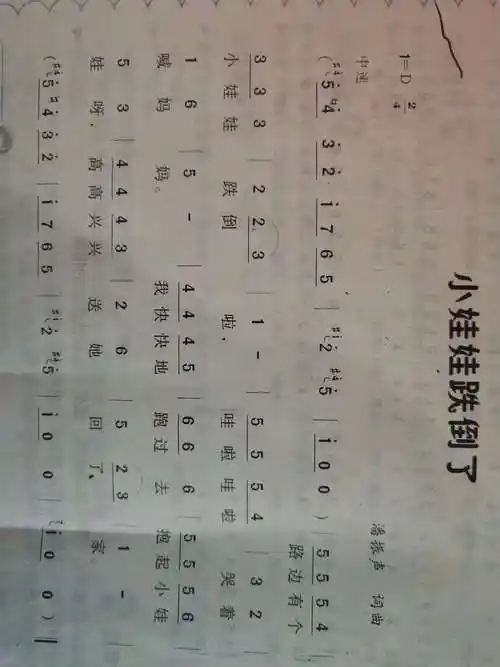 小娃娃跌倒了
1=D 2/4
潘振声 词曲
中速
( 5 4 3 2 i 7 6 5 | 2 5 | i 0 0 ) | 5 5 5 4 |
路边有个
3 3 3 | 2 2 3 | 1 - | 5 5 5 4 | 3 2 |
小娃娃 跌倒 啦, 哇啦哇啦 哭着
1 6 | 5 - | 4 4 4 5 | 6 6 6 | 5 5 5 6 |
喊妈 妈。 我快快地 跑过去 抱起小娃
5 3 | 4 4 4 3 | 2 6 | 5 2 3 | 1 - |
娃呀, 高高兴兴 送她 回了、 家
( 5 4 3 2 | i 7 6 5 | 2 5 | i 0 0 | i 0 0 ) ‖